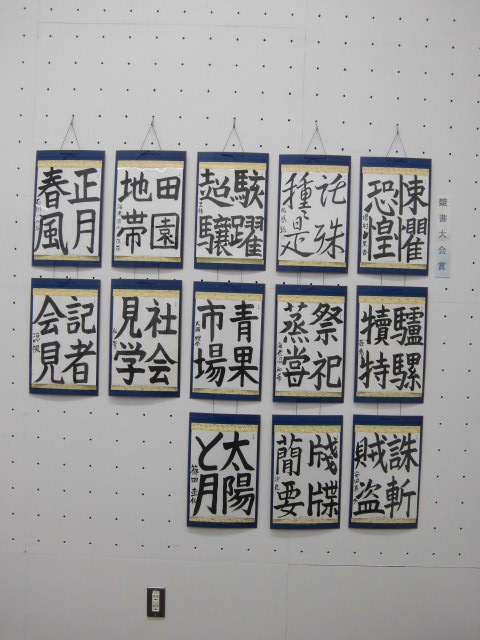 悚懼
恐皇
託殊
種是
駭躍
超驤
田園
地帯
正月
春風
驢騾
犢特
祭祀
蒸嘗
青果
市場
社会
見学
記者
会見
誅斬
賊盗
牋牒
簡要
太陽
と月
競書大会賞